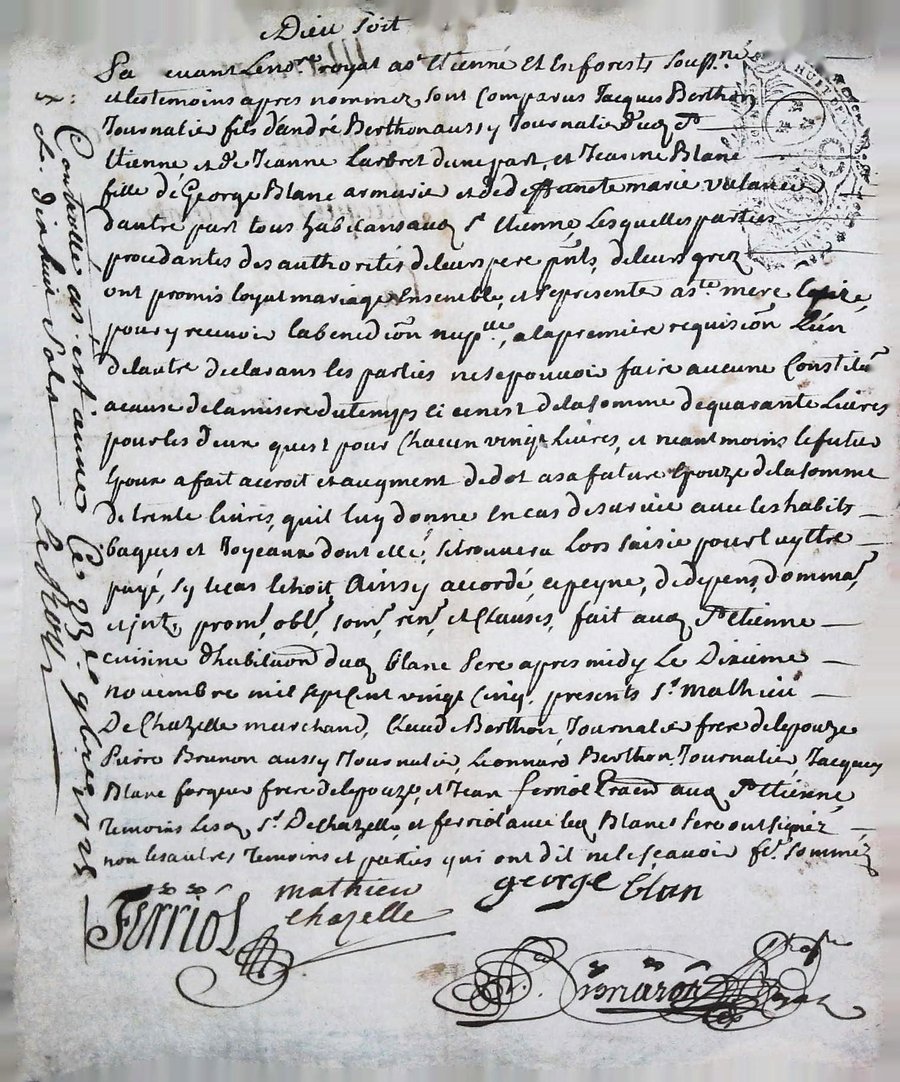 Dieu soit
Pa evant Le nore royal a St Etienne Et En forests souss.né
et les temoins apres nommez, sont Comparus Jacques Berthon
Journalie fils d'andré Berthon aussy Journalie dud St
Etienne, et de Jeanne Larbret d'une part, et Jeanne Blanc
fille de George Blanc armurie et de deffuncte marie valancé
d'autre part tous habitans aud St Etienne, Lesquelles parties
procedantes des authorités de leurs pere pnts, de leurs grez
ont promis loyal mariage Ensemble, et se presenté a ste mere
pour y recevoir la benedion nuple, a la premiere requision L'un
de l'autre declarans les parties ne se pouvoir faire aucune Constiton
a cause de la misere du temps si ce n'est de la somme de quarante Livres
pour les deux quest pour Chacun vingt Livres, et neantmoins le futur
Epoux a fait accroit et augment de dot a sa future Epouze de la somme
de trente livres, quil luy donne en cas de survie avec les habits
bagues et Joyeaux dont elle, se trouvera Lors saisie pour luy etre
payé, sy le cas Echoit Ainsy accordé, a peyne, de depens, dommas,
et jnts, prom, obl, soum, ren, et Clauses, fait aud St Etienne
cuisine d'habitaon dud Blanc Pere apres midy Le Dixieme
novembre mil sept Cent vingt Cinq, presents Sr mathieu
De Chazelle marchand, Claud Berthon, Journalie frere de lepouze
Pierre Brunon aussy Journalie, Leonnard Berthon Journalie, Jacques
Blanc forgeur frere de lepouze, et Jean ferriol aud St Etienne
Temoins Lesd Sr De Chazelle, et ferriol avec led Blanc Pere ont signéz
non les autres Temoins et parties qui ont dit ne le sçavoir fe. sommez
Ferriol
mathieu
chazelle
george blan
Controllé a St estienne Ce 23e 9bre 1725
R. dix huit sols